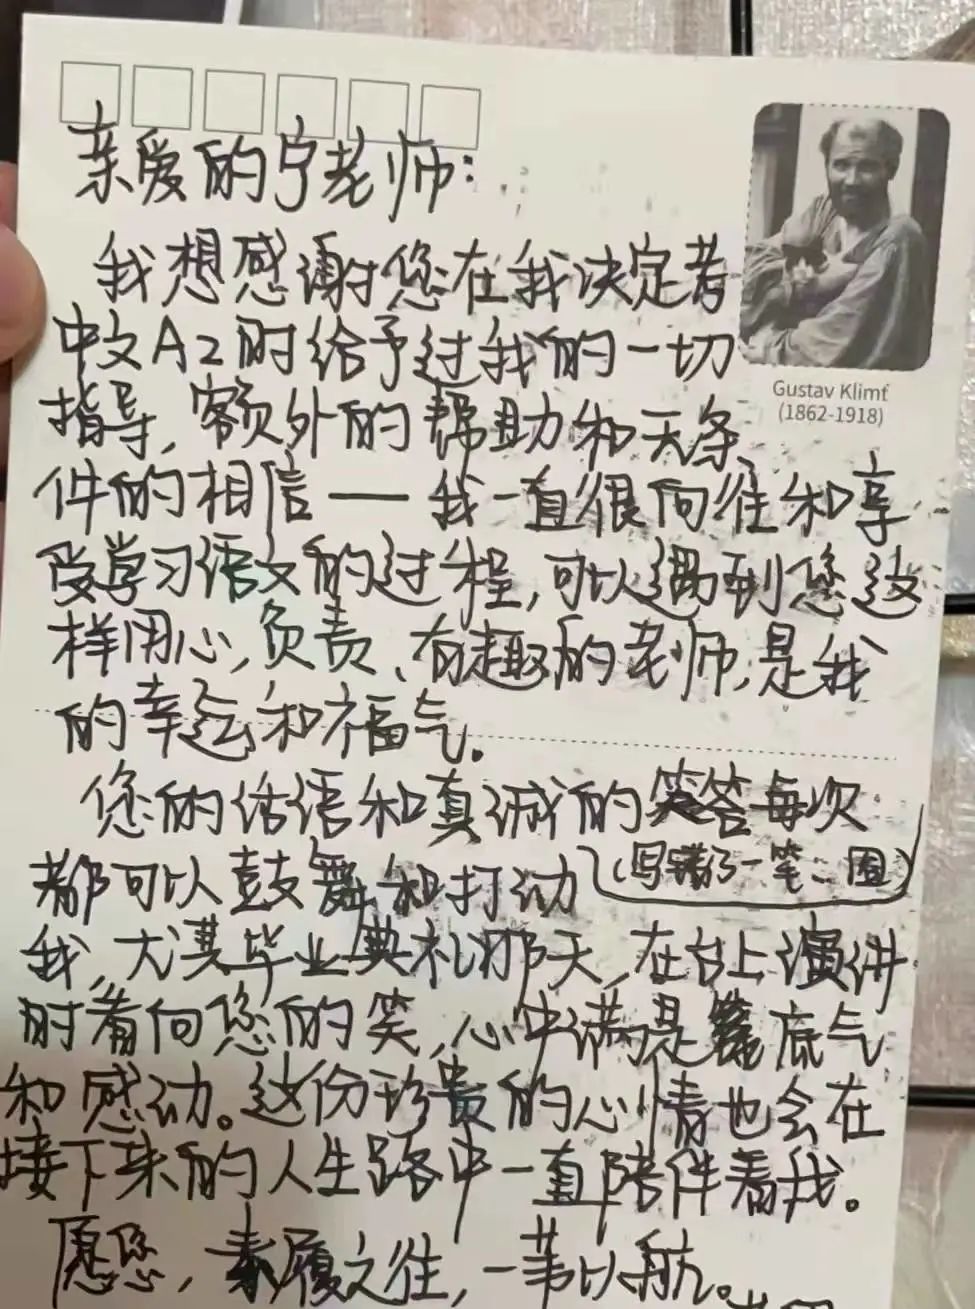 亲爱的宁老师:
我想感谢您在我决定考
中文A2时给予过我的一切
Gustav Klimt
(1862-1918)
指导,额外的帮助和无条
件的相信——我一直很向往和享
受学习语文的过程,可以遇到您这
样用心,负责、有趣的老师,是我
的幸运和福气.
您的话语和真诚的笑容每次
(写错了一笔:囧)
都可以鼓舞和打动
我,尤其毕业典礼那天,在台上演讲
时看向您的笑,心中满是底气
和感动。这份珍贵的心情也会在
接下来的人生路中一直陪伴着我。
愿您,素履之往,一苇以航。